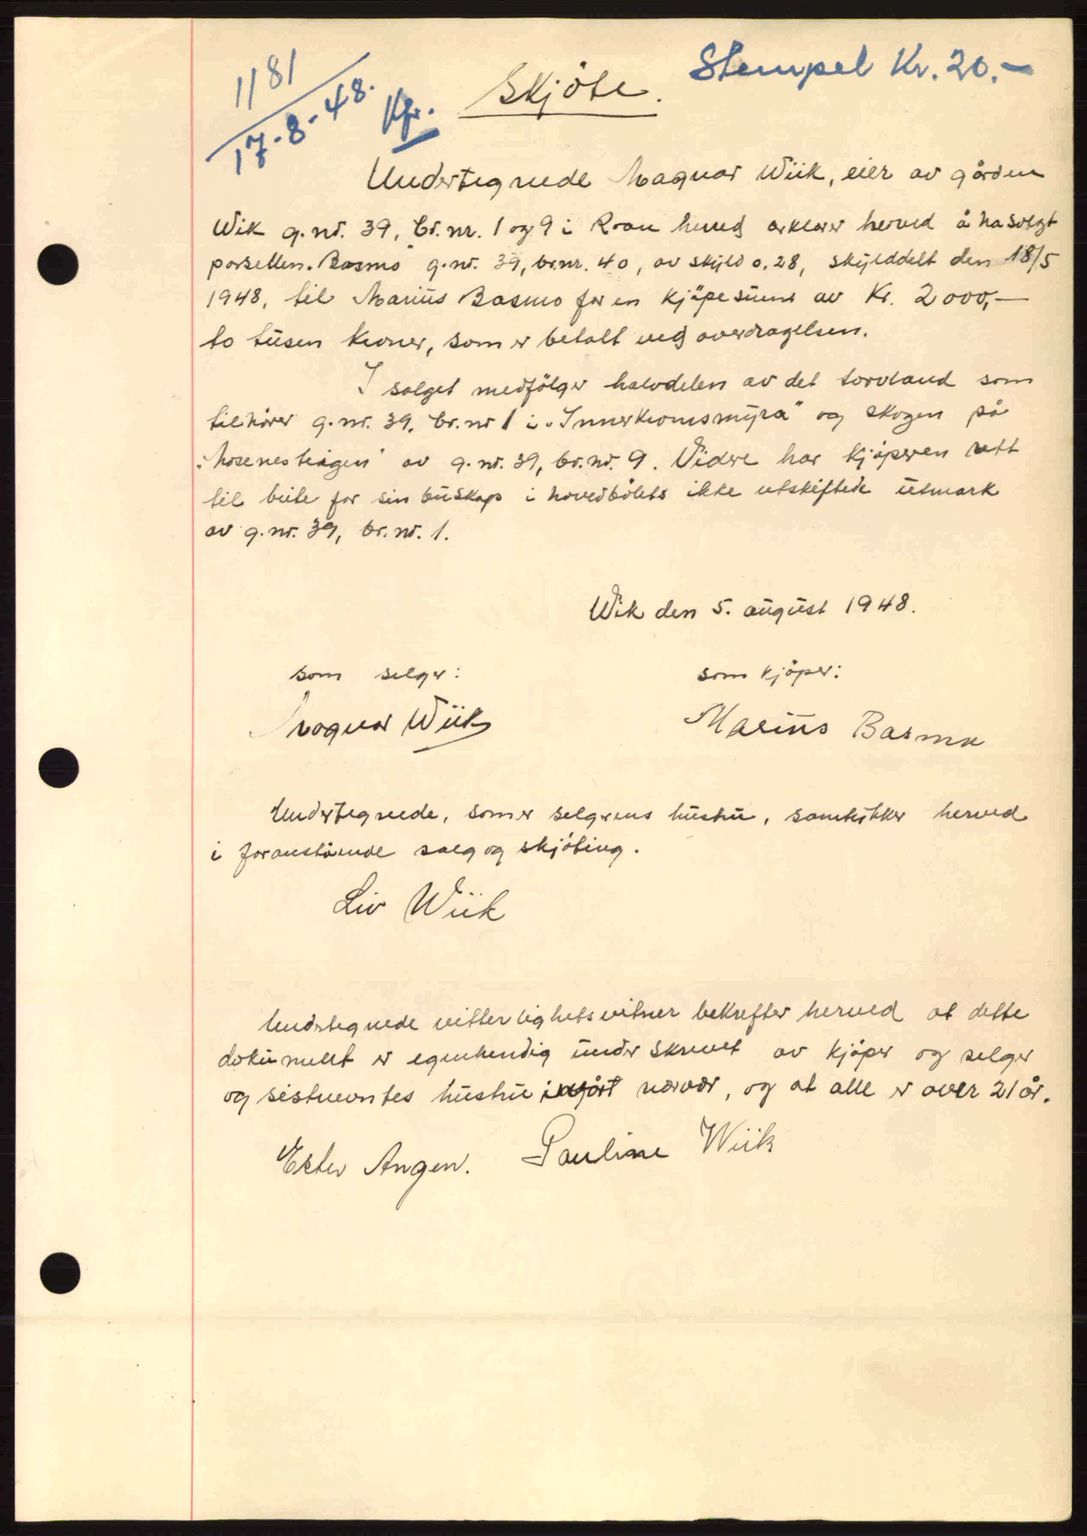 1181
17-8-48.
Kfr.
Skjöte.
Stempel Kr. 20.-
Undertegnede Magnar Wiik, eier av gården
Wik g.nr. 39, br.nr. 1 og 9 i Roan herred erklærer herved å ha solgt
parsellen „Basmo" g.nr. 39, br.nr. 40, av skyld 0.28, skylddelt den 18/5
1948, til Marius Basmo for en kjöpesum av Kr. 2000,-
to tusen kroner, som er betalt ved overdragelsen.
I salget medfölger halvdelen av det torvland som
tilhörer g.nr. 39, br.nr 1 i „Innerkromsmyra" og skogen på
av g.nr. 39, br.nr. 9. Videre har kjöperen rett
til beite for sin buskap i hovedbölets ikke utskiftede utmark
av g.nr. 39, br.nr. 1.
Wik den 5. august 1948.
som selger:
som kjöper:
Magnar Wiik
Marius Basmo
Undertegnede, som er selgerens hustru, samtykker herved
i foranstående salg og skjöting.
Liv Wiik
Undertegnede vitterlighetsvitner bekrefter herved at dette
dokument er egenhendig underskrevet av kjöper og selger
og sistnevntes hustru i vårt nærvær, og at alle er over 21 år.
Ester Angen.
Pauline Wiik